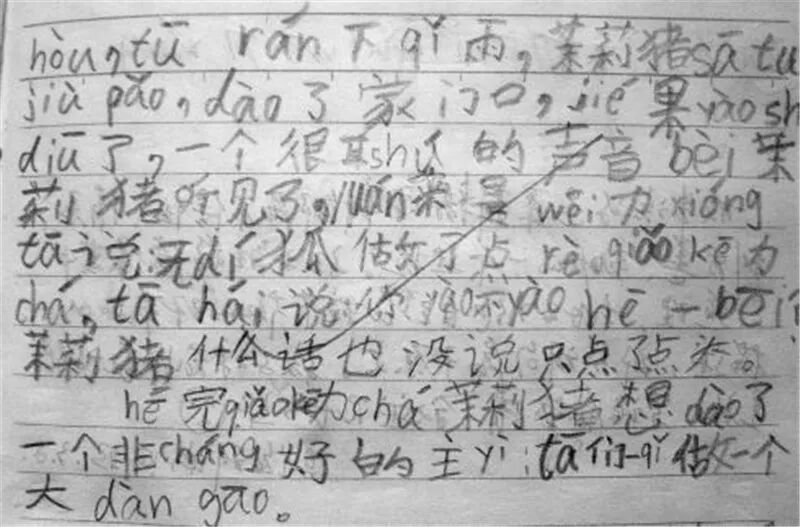 hòu，tū rán 下 qǐ 雨，茉莉猪 sā tu
jiù pǎo，dào 了家门口，jié 果 yào sh
diū 了，一个很其 shú 的声音 bèi 茉
莉猪听见了，yuán 来是 wēi 力 xióng
tā 说：无 dí 狐估做了点 rè qiǎo kē 力
chá，tā hái 说你 yào 不 yào hē 一 bēi
茉莉猪什么话也没说只点了点头。
hē 完 qiǎo kē 力 chá 茉莉猪想 dào 了
一个非 cháng 好的主 yì：tā 们一 qǐ 做一个
大 dàn gāo。